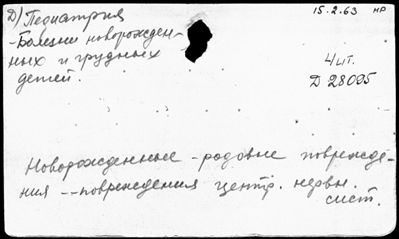 Д) Педиатрия
15.2.63 нр
- Болезни новорожден-
ных и грудных
детей.
4 ит.
Д 28095
Новорожденные - родовые поврежде-
ния -- повреждения центр. нервн.
сист.